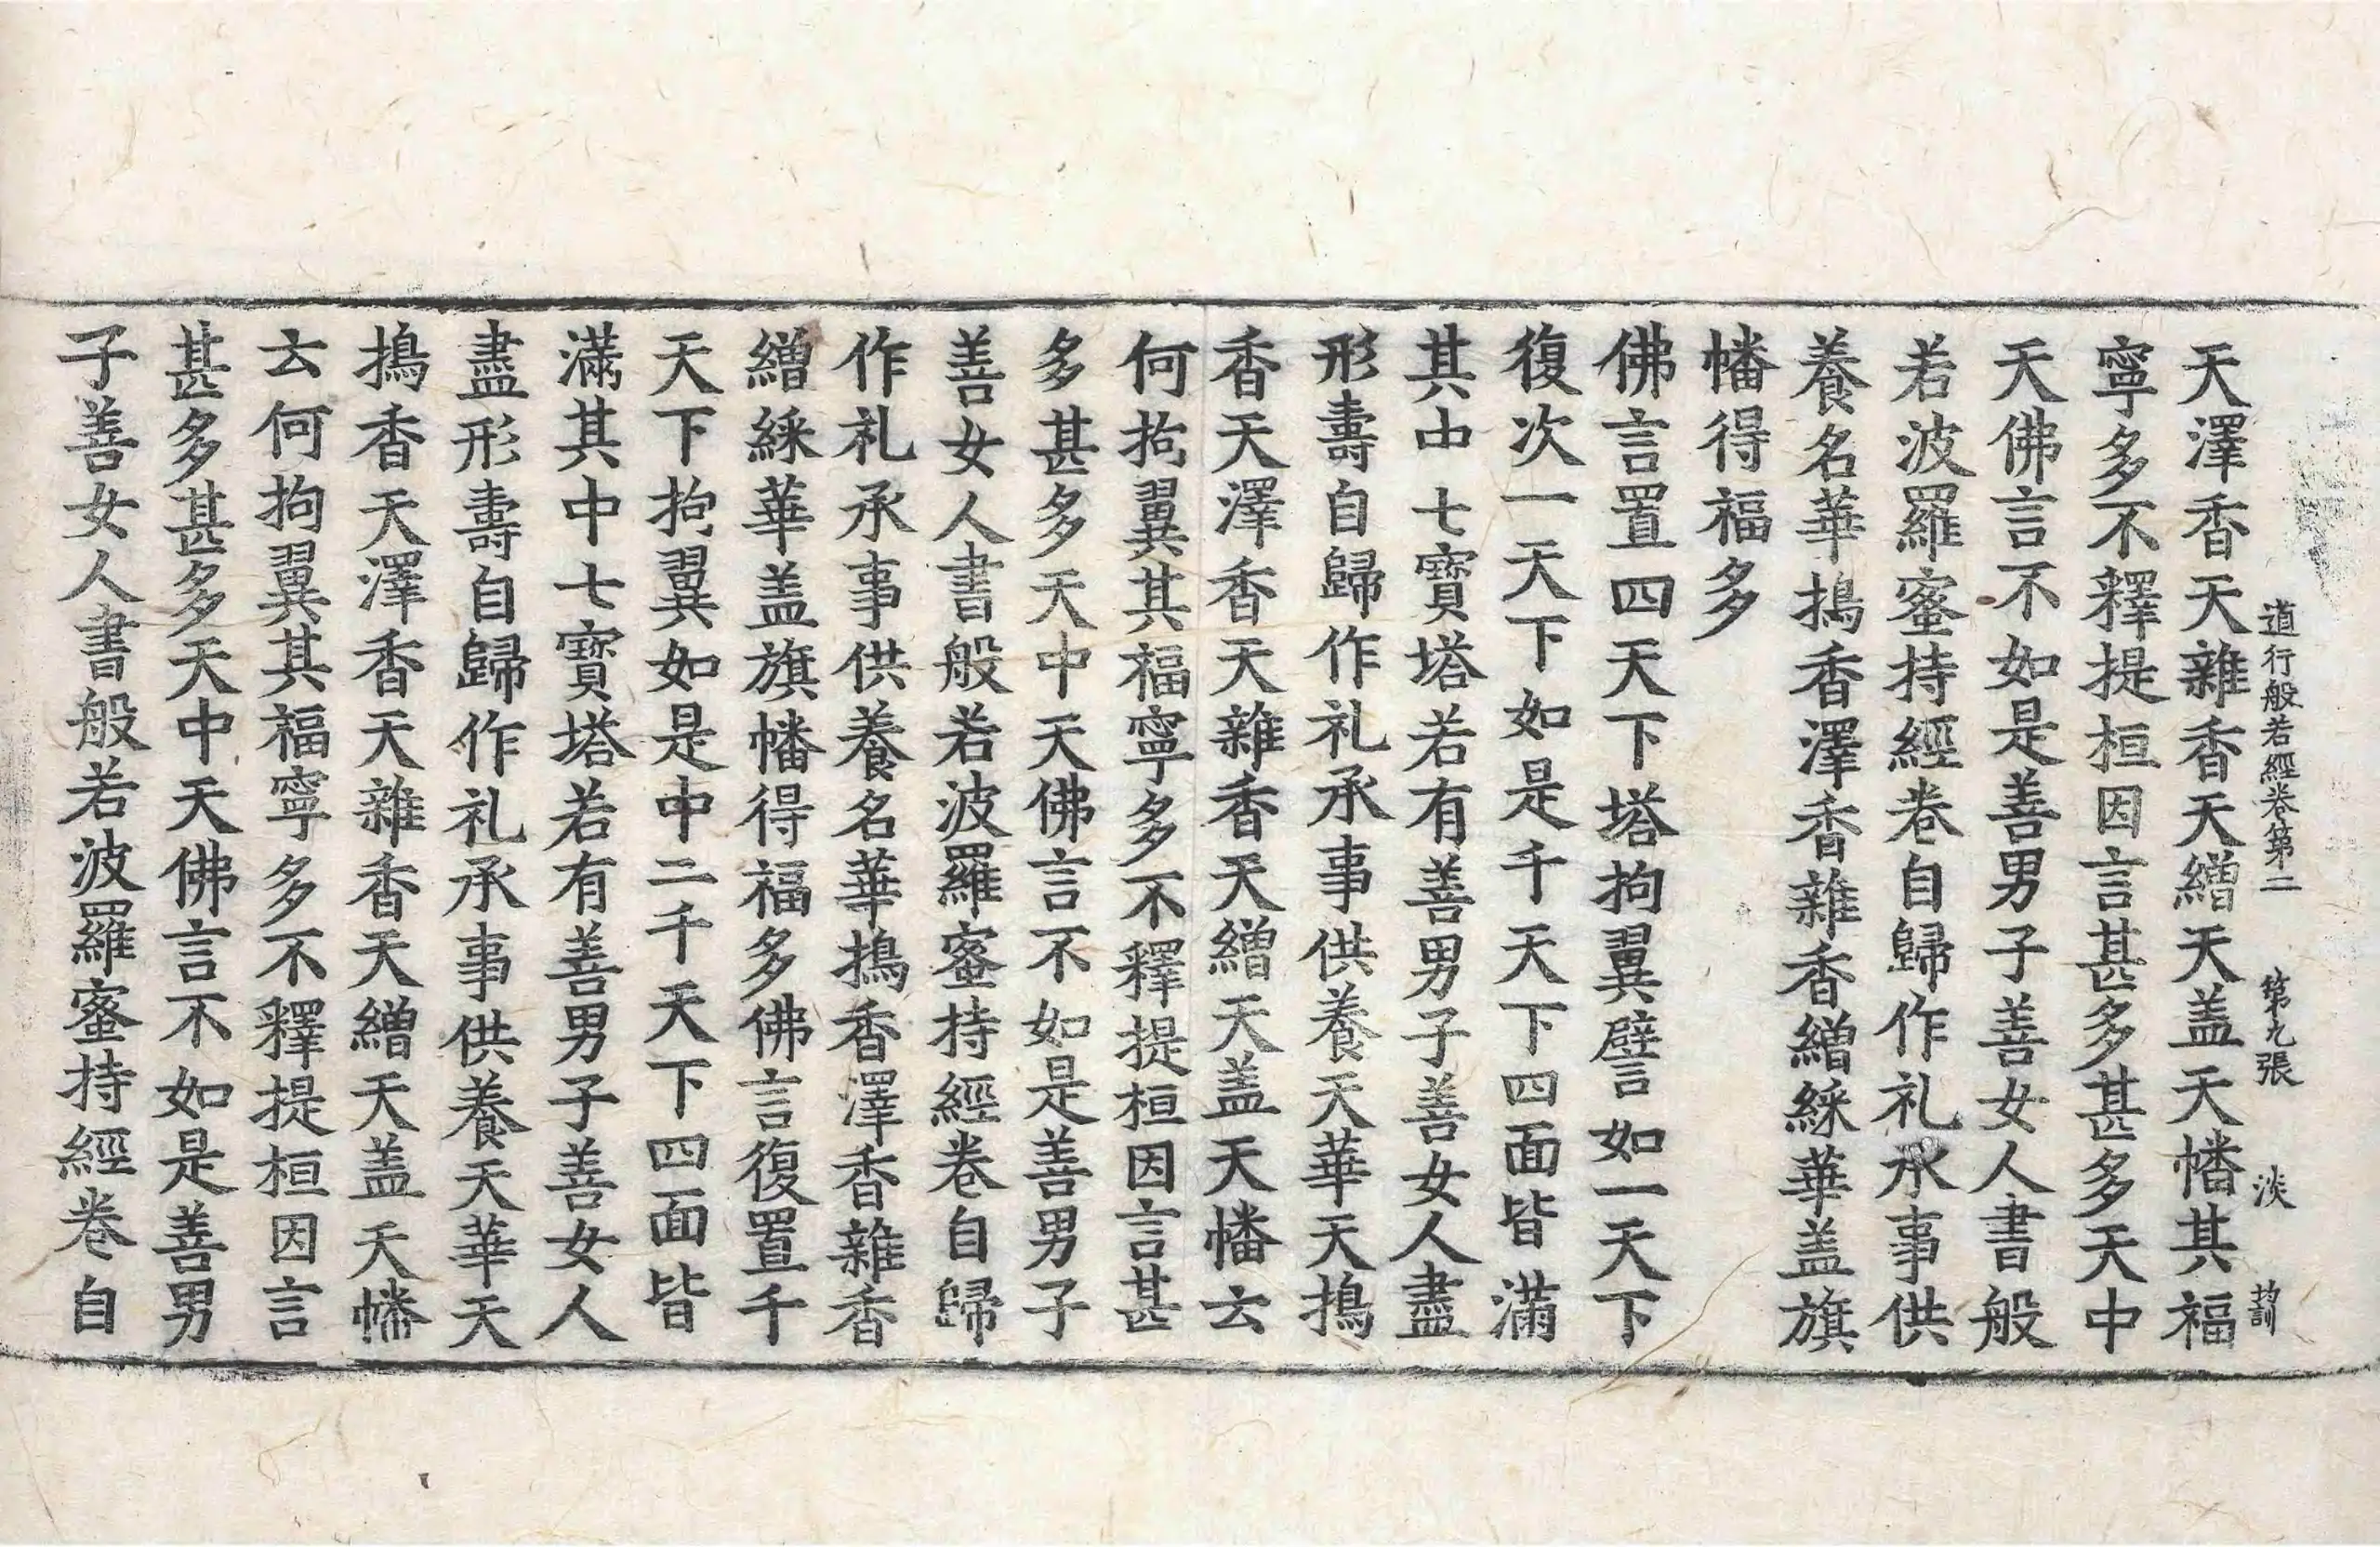 道行般若經卷第二 第九張 淡
天澤香天雜香天繒天盖天幡其福
寧多不釋提桓因言甚多甚多天中
天佛言不如是善男子善女人書般
若波羅蜜持經卷自歸作礼承事供
養名華搗香澤香雜香繒綵華盖旗
幡得福多
佛言置四天下塔拘翼譬如一天下
復次一天下如是千天下四面皆滿
其中七寶塔若有善男子善女人盡
形壽自歸作礼承事供養天華天搗
香天澤香天雜香天繒天盖天幡云
何拘翼其福寧多不釋提桓因言甚
多甚多天中天佛言不如是善男子
善女人書般若波羅蜜持經卷自歸
作礼承事供養名華搗香澤香雜香
繒綵華盖旗幡得福多佛言復置千
天下拘翼如是中二千天下四面皆
滿其中七寶塔若有善男子善女人
盡形壽自歸作礼承事供養天華天
搗香天澤香天雜香天繒天盖天幡
云何拘翼其福寧多不釋提桓因言
甚多甚多天中天佛言不如是善男
子善女人書般若波羅蜜持經卷自